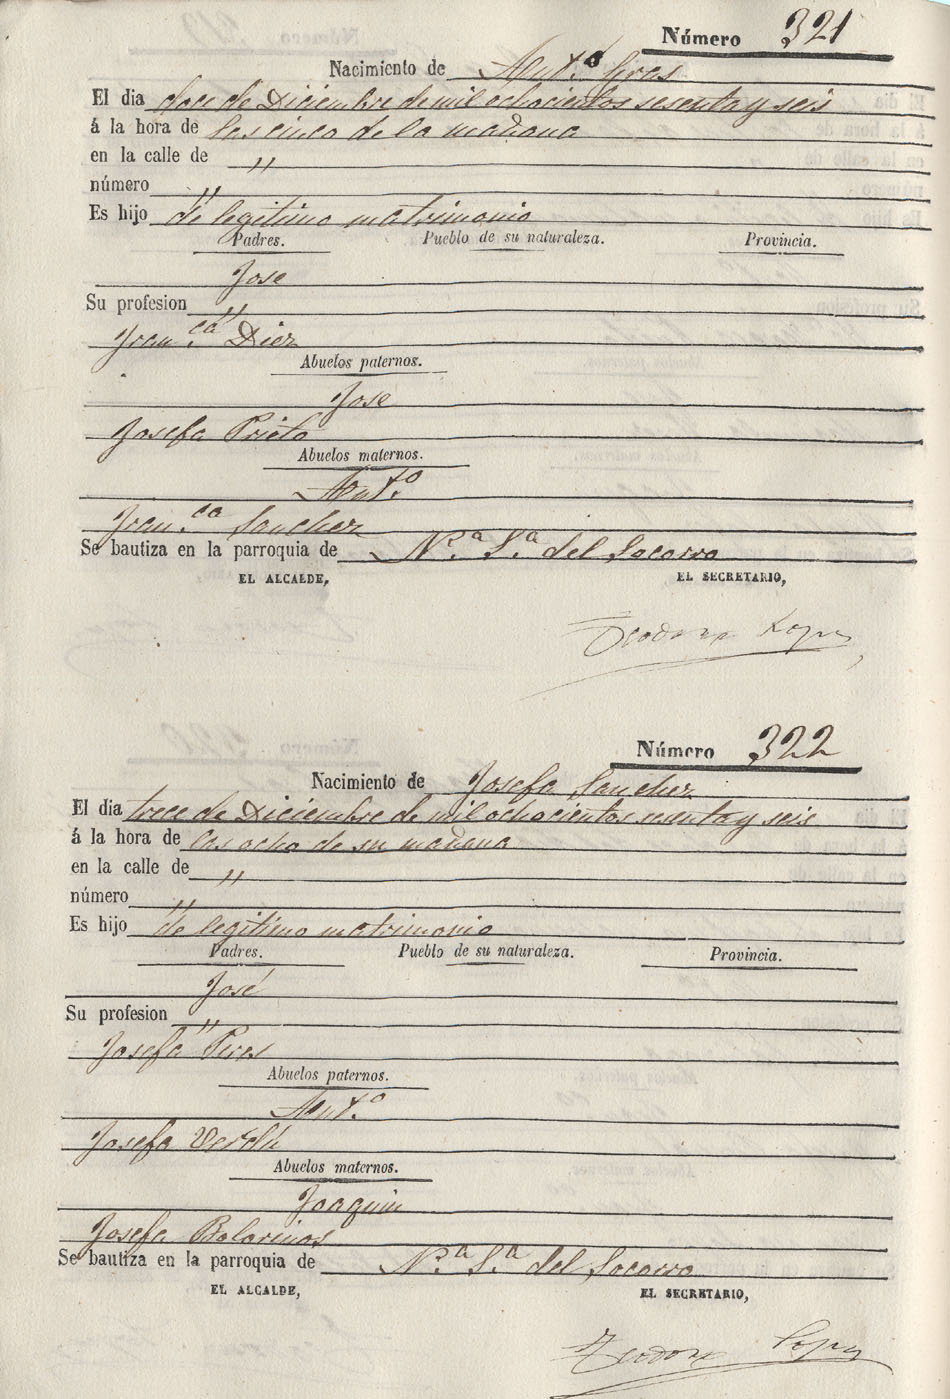 Número 321
Nacimiento de Ant.o Gires
El dia doce de Diciembre de mil ochocientos sesenta y seis
á la hora de las cinco de la mañana
en la calle de "
número "
Es hijo de legitimo matrimonio
Padres. Pueblo de su naturaleza. Provincia.
Jose
Su profesion "
Fran.ca Diez
Abuelos paternos.
Jose
Josefa Prieto
Abuelos maternos.
Ant.o
Fran.ca Sanchez
Se bautiza en la parroquia de N.a S.a del Socorro
EL ALCALDE, EL SECRETARIO,
Teodoro Lopez
Número 322
Nacimiento de Josefa Sanchez
El dia trece de Diciembre de mil ochocientos sesenta y seis
á la hora de las ocho de su mañana
en la calle de "
número "
Es hijo de legitimo matrimonio
Padres. Pueblo de su naturaleza. Provincia.
José
Su profesion "
Josefa Pires
Abuelos paternos.
Ant.o
Josefa Verdú
Abuelos maternos.
Joaquin
Josefa Bolarinos
Se bautiza en la parroquia de N.a S.a del Socorro
EL ALCALDE, EL SECRETARIO,
Teodoro Lopez